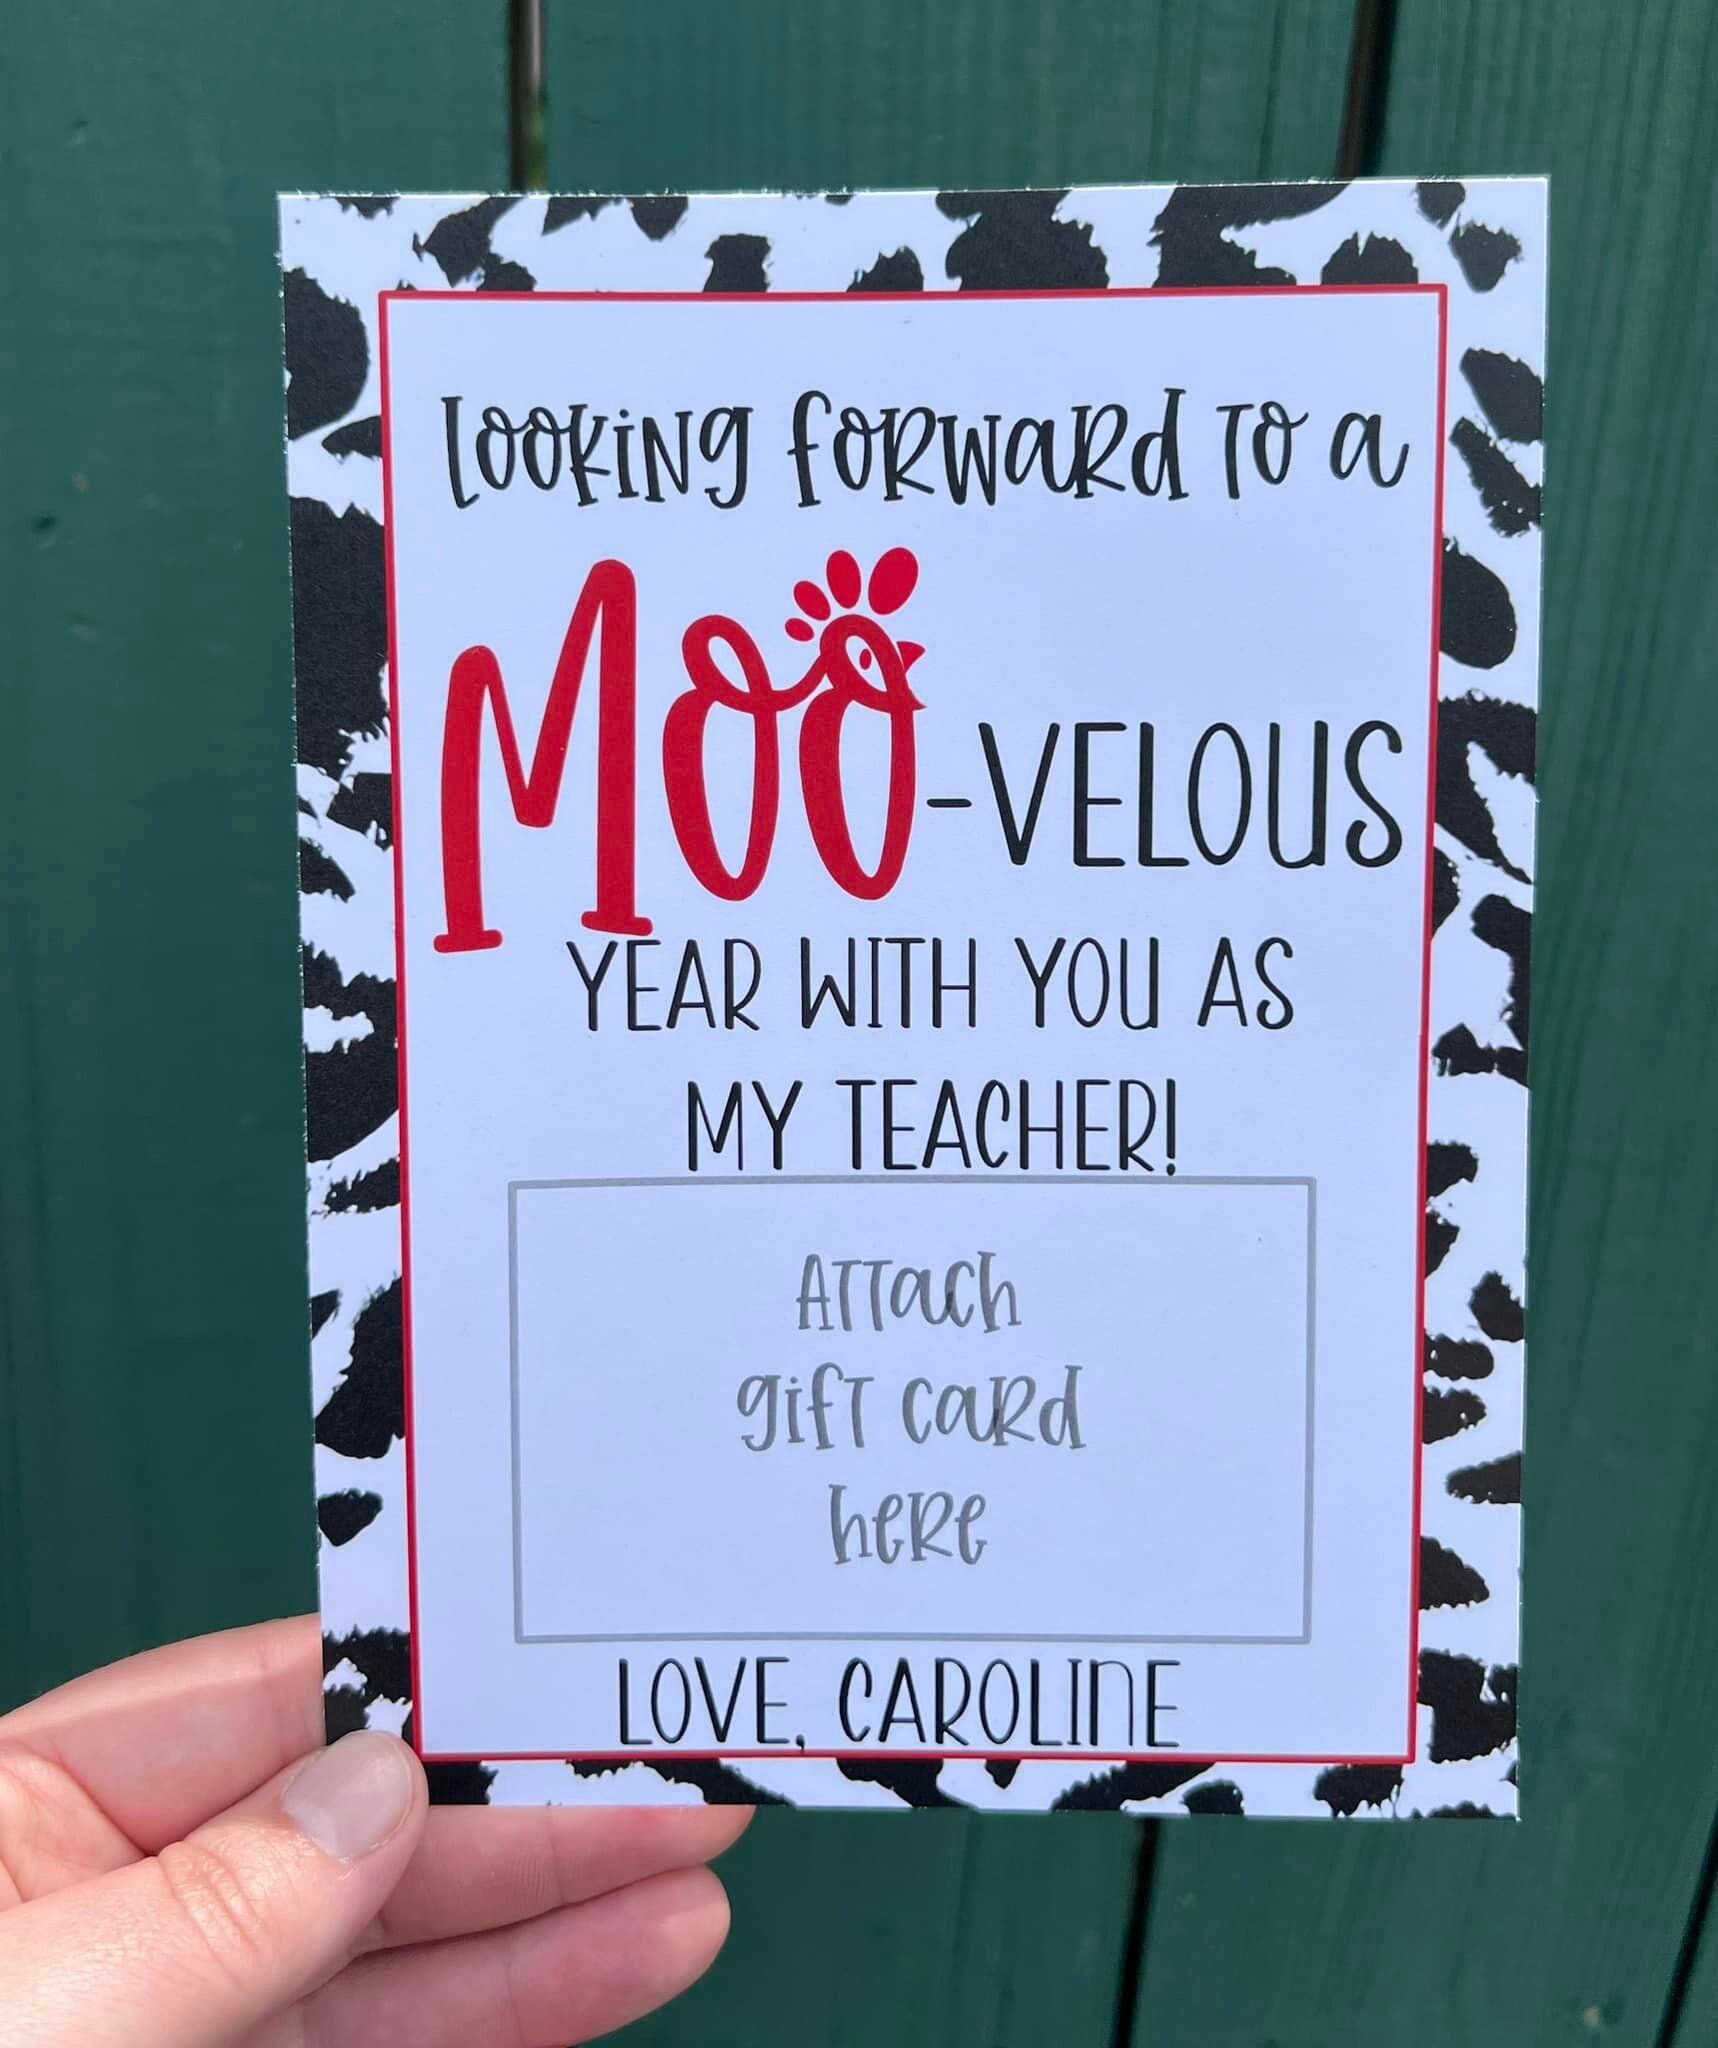 Looking forward to a
Moo-VELOUS
YEAR WITH YOU AS
MY TEACHER!
Attach
gift card
here
LOVE, CAROLINE